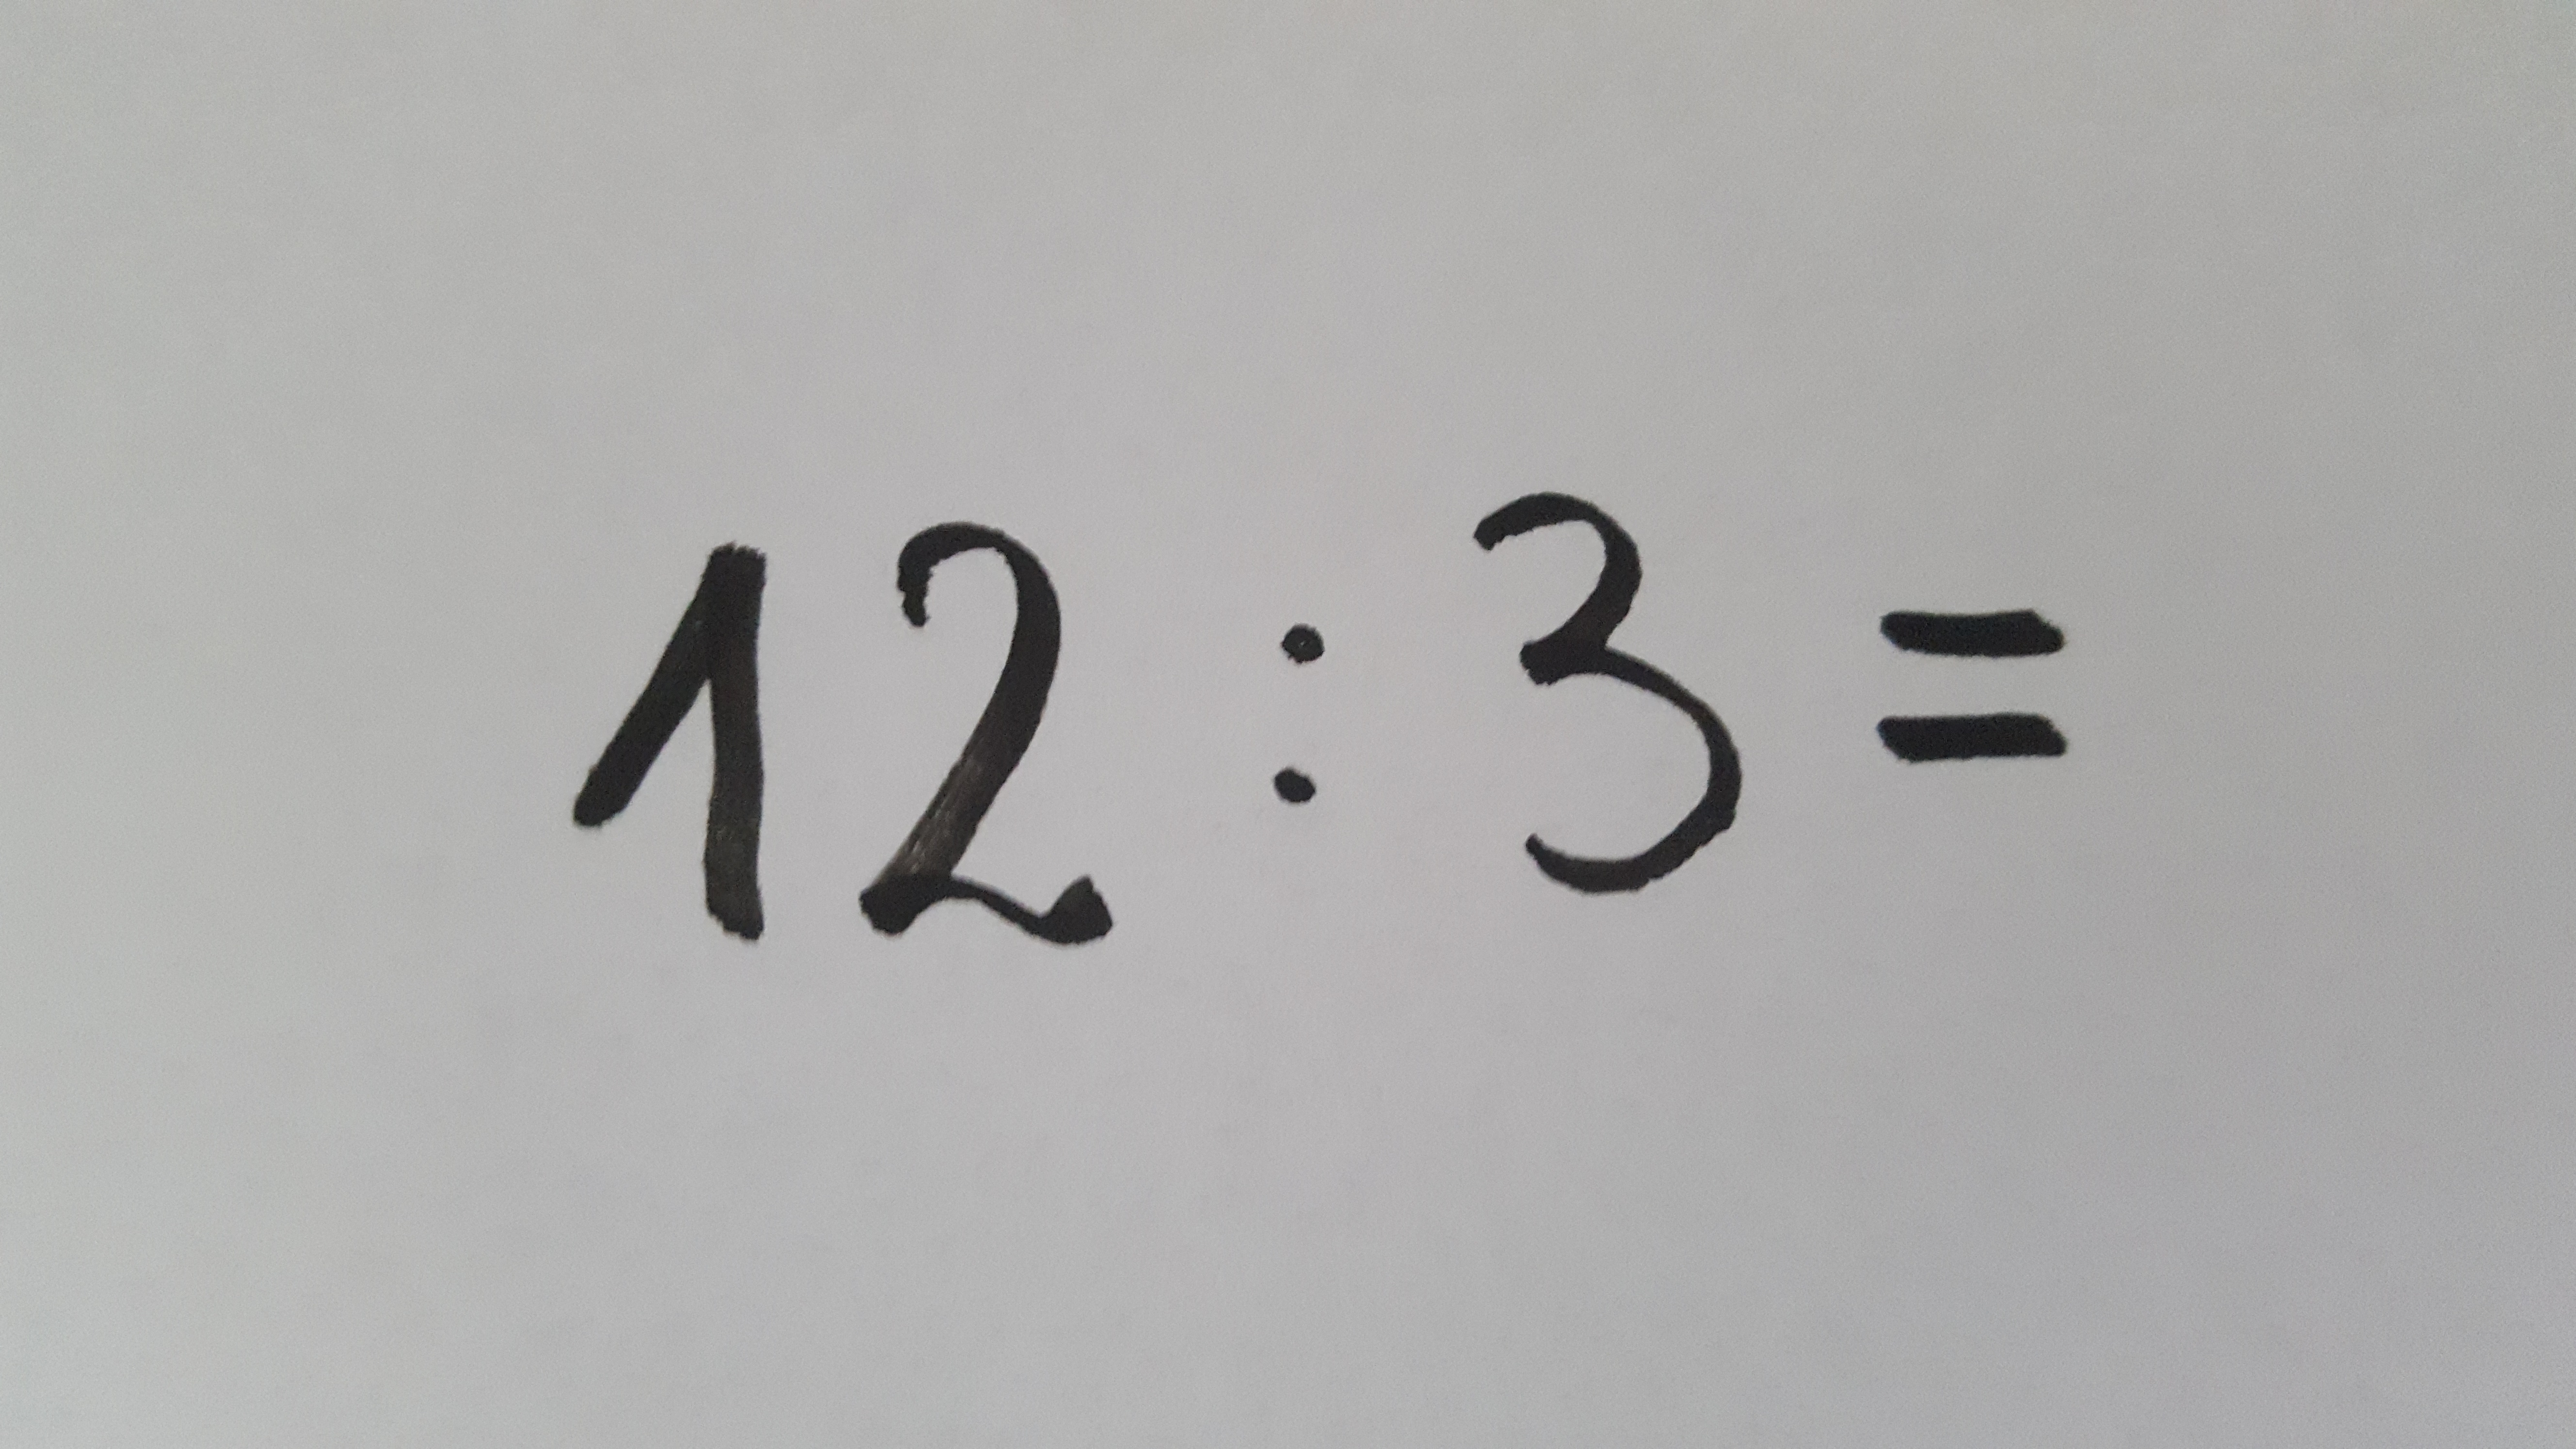 12 : 3 =